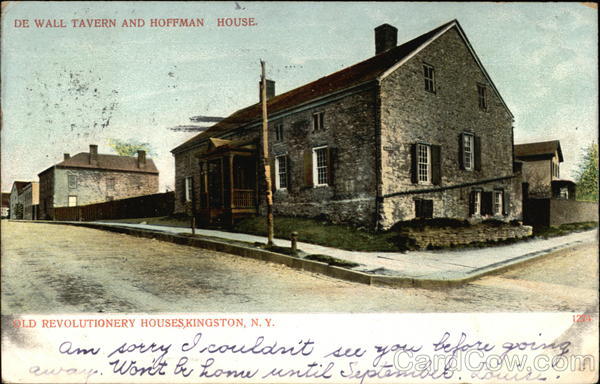 DE WALL TAVERN AND HOFFMAN HOUSE.
OLD REVOLUTIONERY HOUSES, KINGSTON, N. Y.
am sorry I couldn't see you before going
away. Won't be home until September
CardCow.com